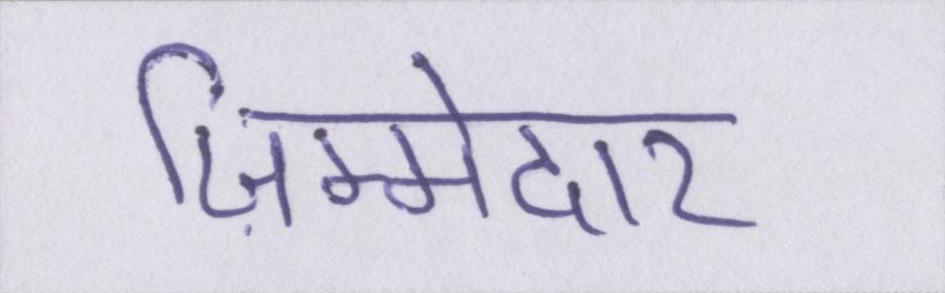 ज़िम्मेदार